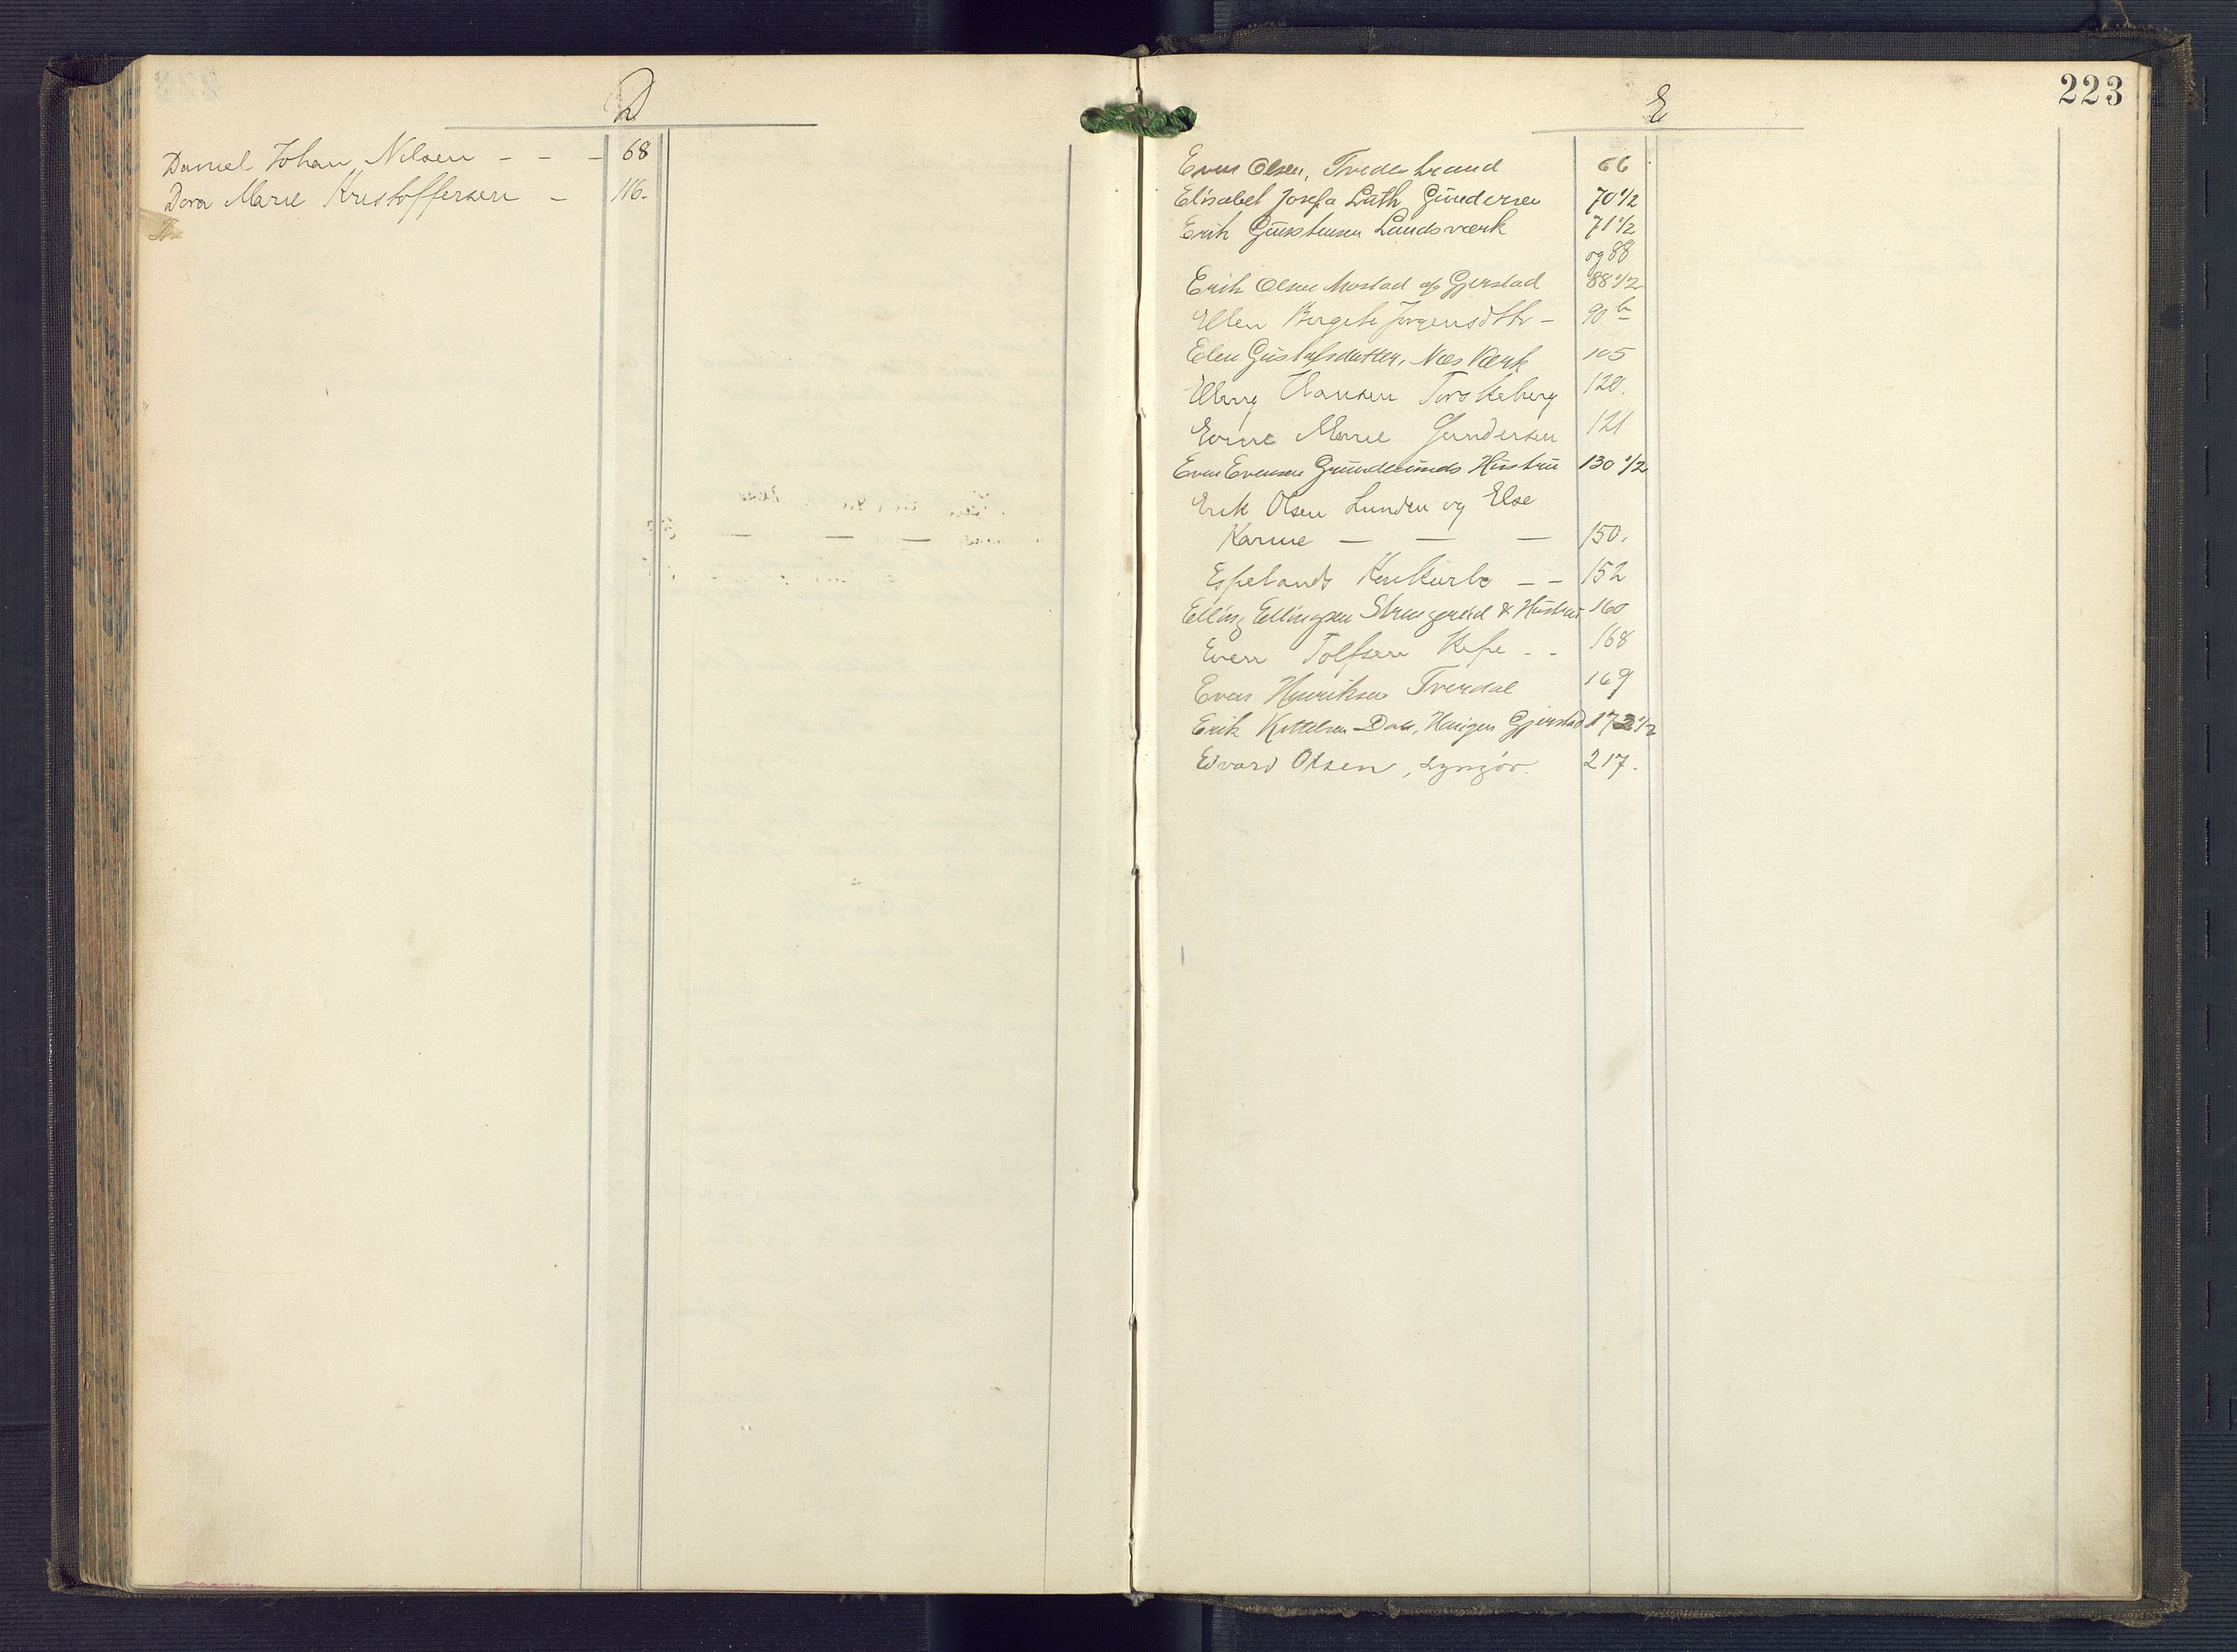 D
Daniel Johan Nilsen - - - 68
Dora Marie Kristoffersen - 116.
223
E
Even Olsen, Tvedestrand 66
Elisabet Josefa Lath Gundersen 70 1/2
Erik Gunstensen Landsværk 71 1/2
og 88
Erik Olsen Mostad af Gjerstad 88 1/2
Ellen Bergete Jørgensdttr - 90 b
Elen Gustafsdatter, Næs Værk 105
Elling Hansen Torskeberg 120.
Evine Marie Gundersen 121
Even Evensen Grundesunds Hustru 130 1/2
Erik Olsen Lunden og Else
Karine - - - 150.
Espelands - - 152
Elling Ellingsen Strengereid & Hustru 160
Even Tolfsen - - 168
Even Henriksen Tverdal 169
Erik Kittelsen Dale, Gjerstad 172 1/2
Edvard Olsen, Lyngør. 217.